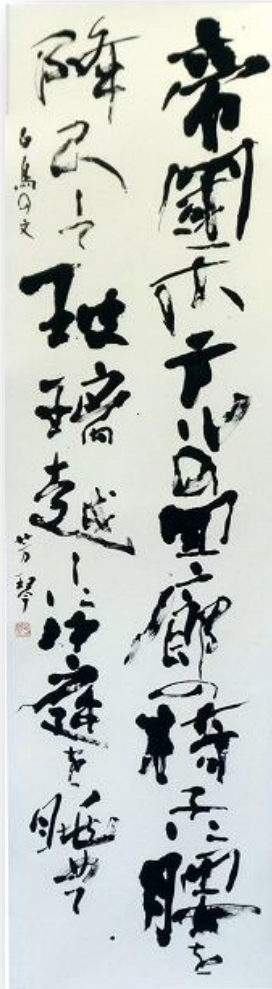 帝國ホテルの回廊の椅子に腰を
降ろして玻璃越しに中庭を眺めて
白鳥の文
芳琴